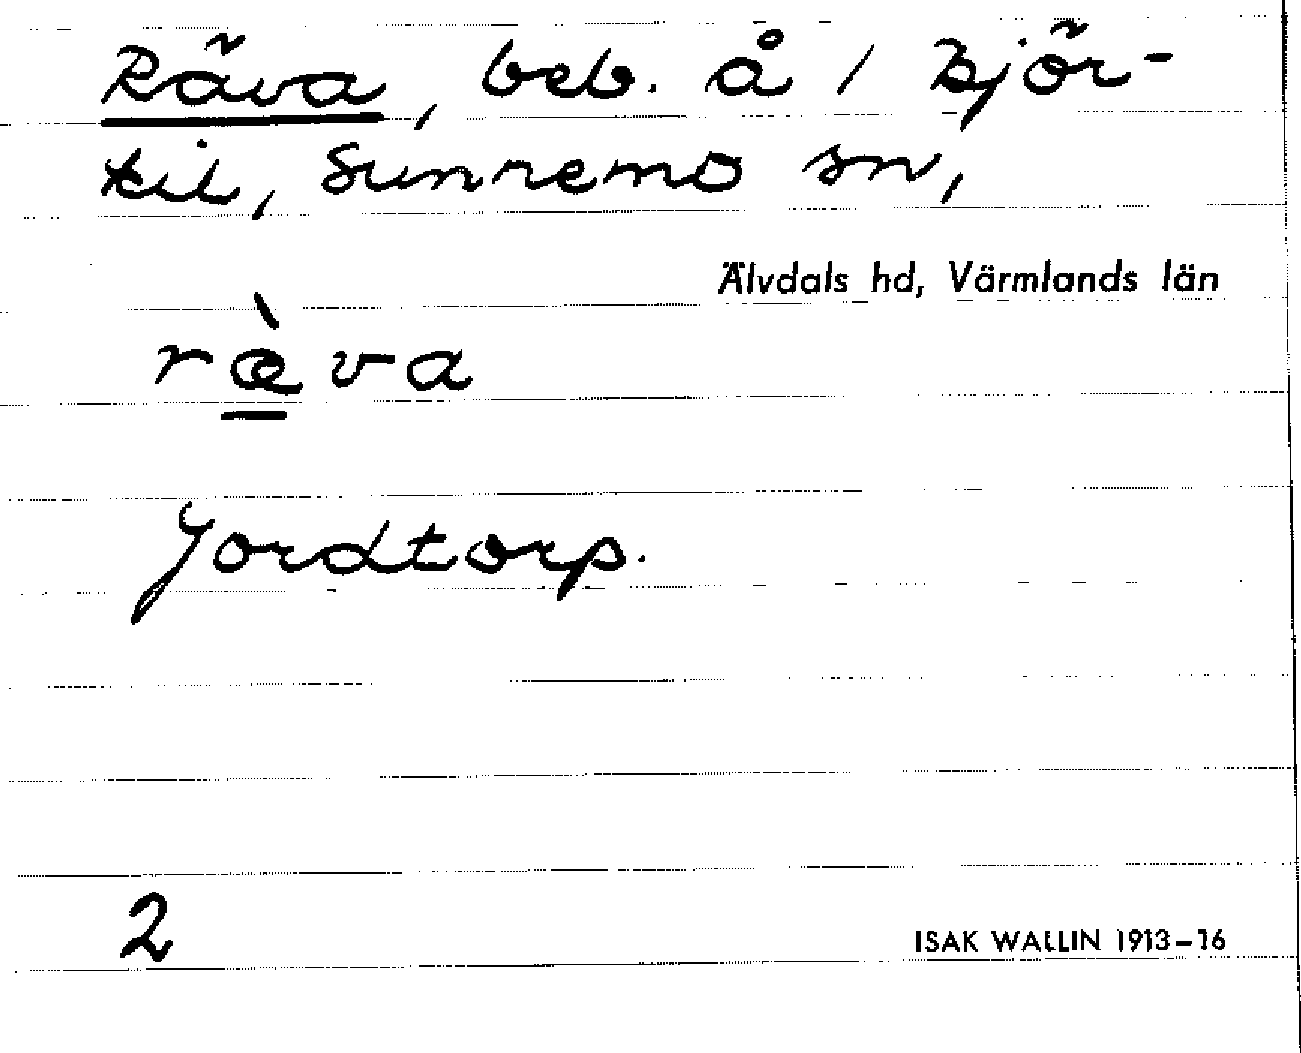 Räva, beb. å 1 Björ-
til, Sunnemo sn,
Älvdals hd, Värmlands län
ræ̀va
Jordtorp.
2
ISAK WALLIN 1913–16